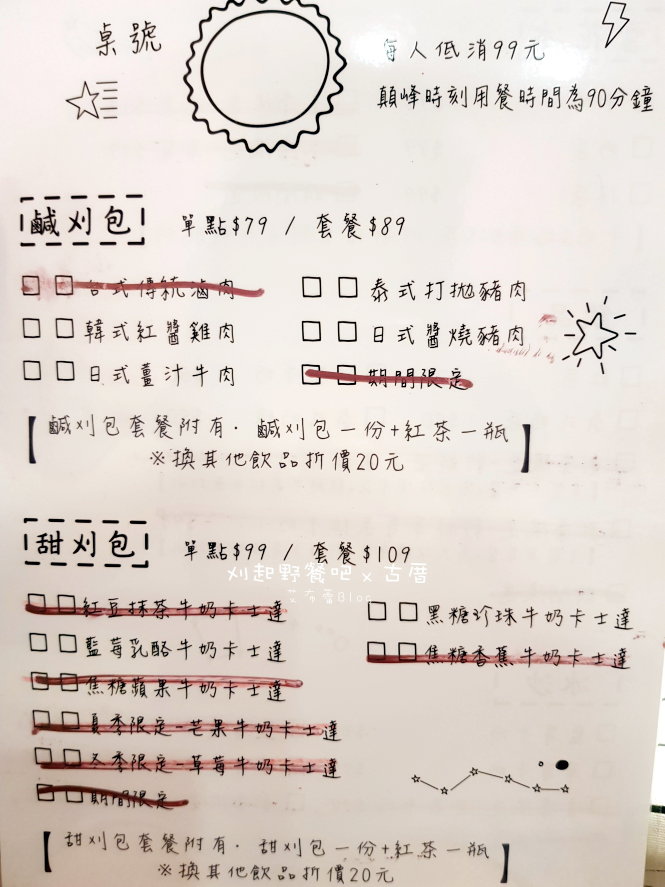 桌號
每人低消99元
顛峰時刻用餐時間為90分鐘
鹹刈包 單點$79 / 套餐$89
□ □ 台式傳統滷肉 □ □ 泰式打拋豬肉
□ □ 韓式紅醬雞肉 □ □ 日式醬燒豬肉
□ □ 日式薑汁牛肉 □ □ 期間限定
【鹹刈包套餐附有·鹹刈包一份+紅茶一瓶
※換其他飲品折價20元】
甜刈包 單點$99 / 套餐$109
刈起野餐吧 x 古厝
艾布魯Blog
□ □ 紅豆抹茶牛奶卡士達 □ □ 黑糖珍珠牛奶卡士達
□ □ 藍莓乳酪牛奶卡士達 □ □ 焦糖香蕉牛奶卡士達
□ □ 焦糖蘋果牛奶卡士達
□ □ 夏季限定-芒果牛奶卡士達
□ □ 冬季限定-草莓牛奶卡士達
□ □ 期間限定
【甜刈包套餐附有·甜刈包一份+紅茶一瓶
※換其他飲品折價20元】